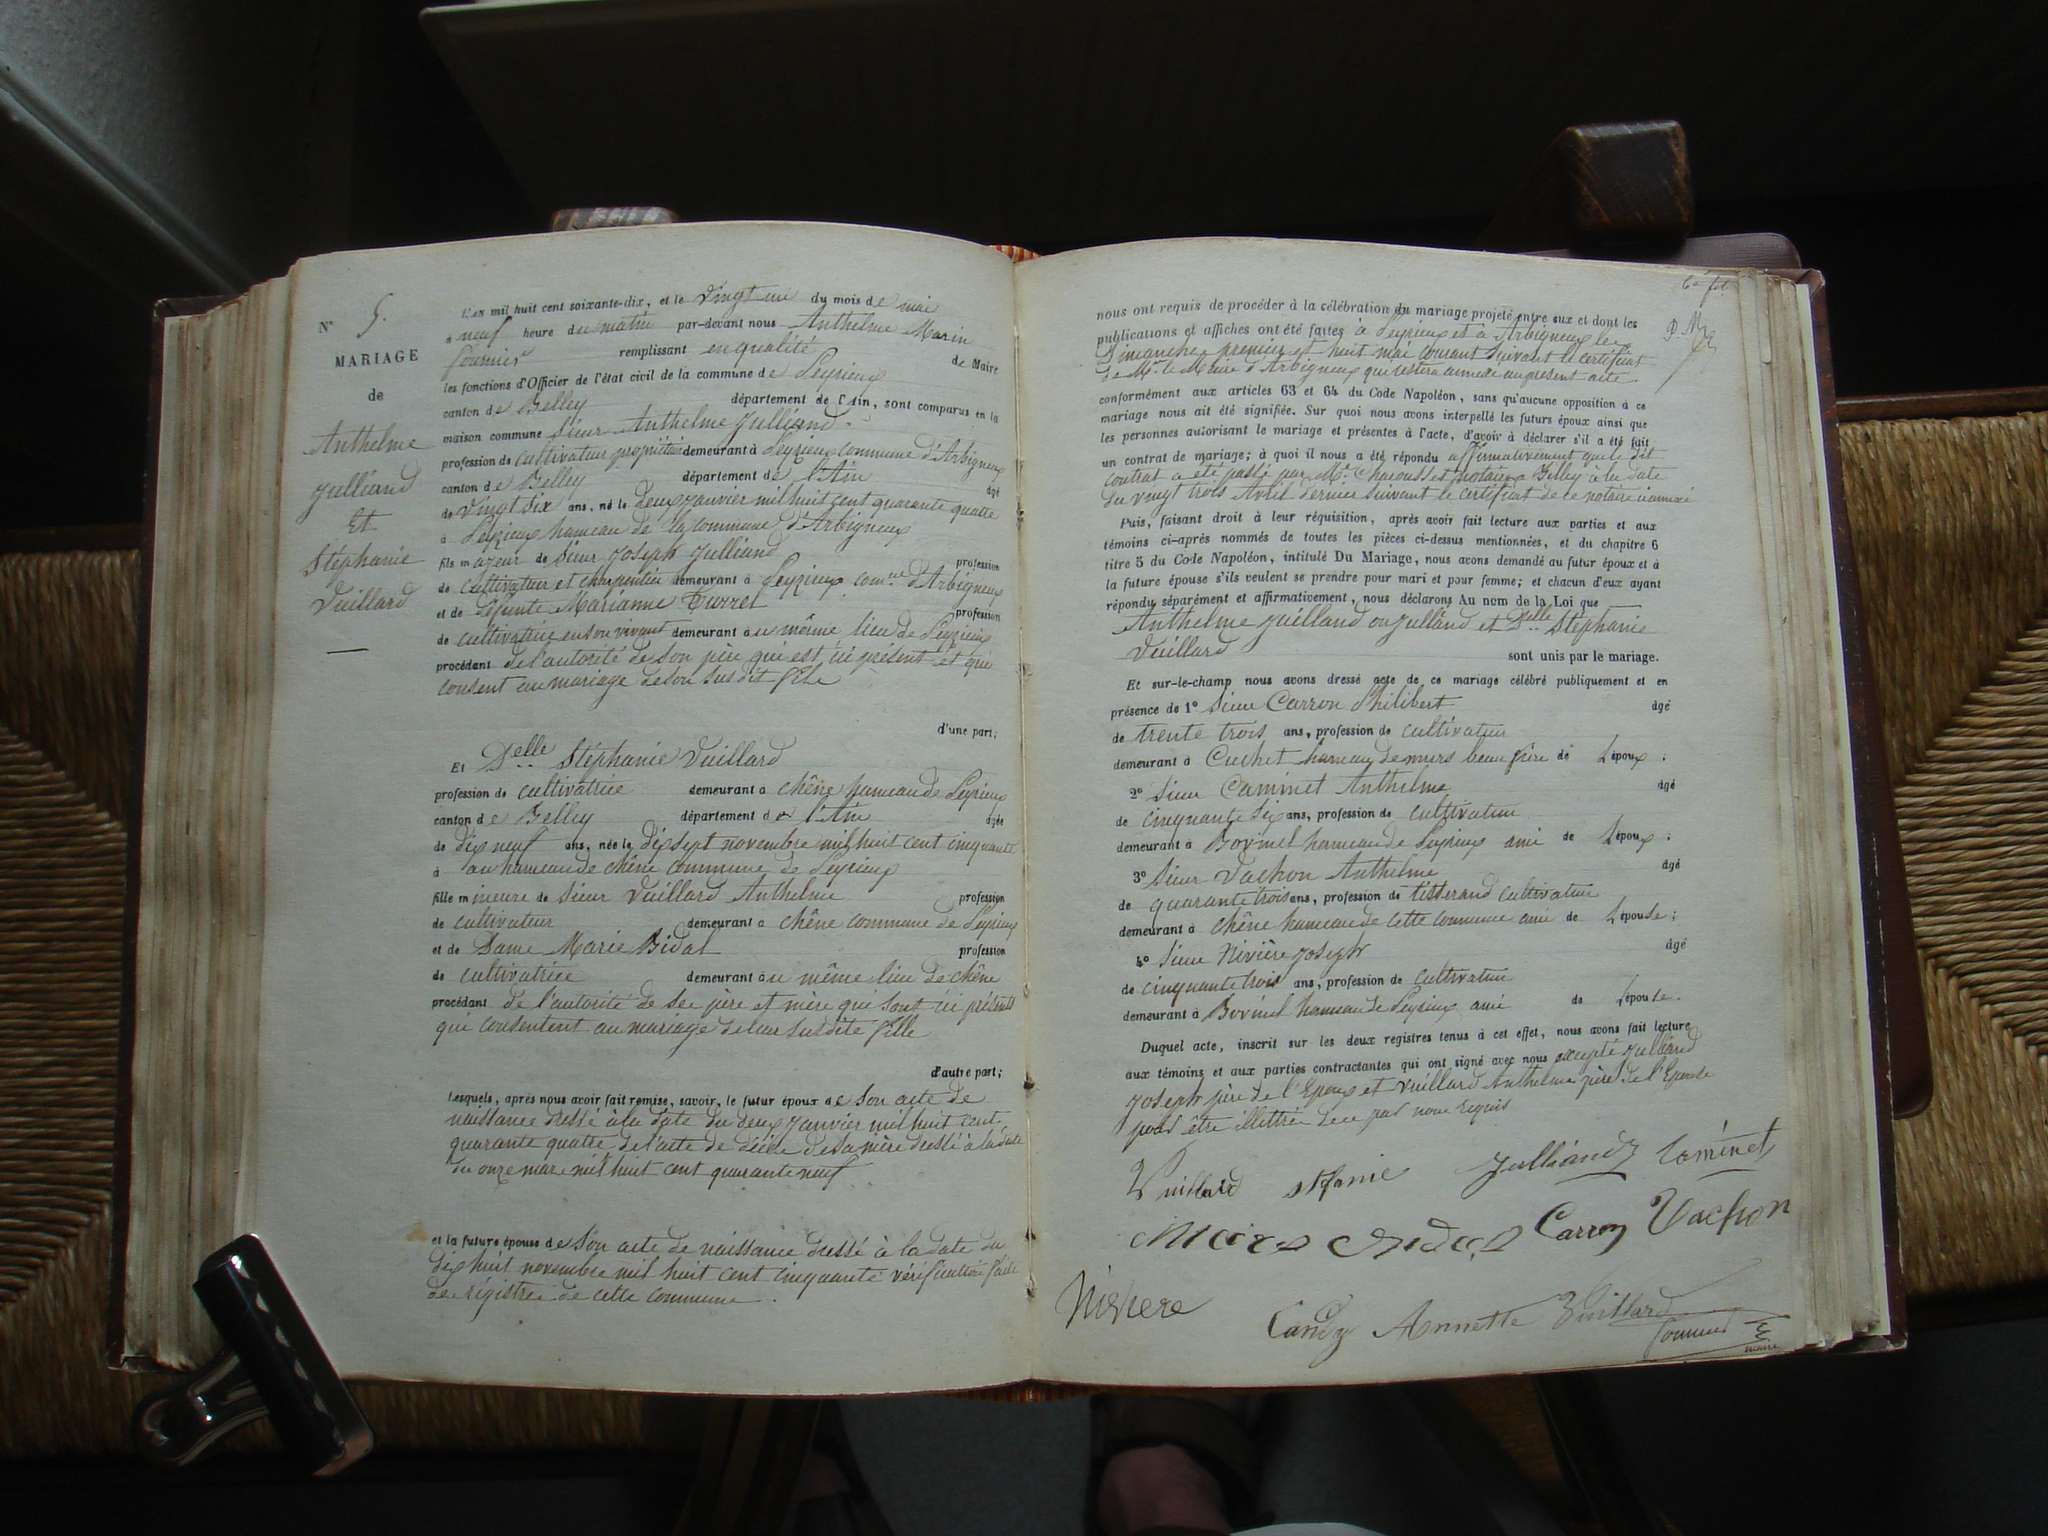 N° 5.
MARIAGE
de
Anthelme
Julliand
Et
Stéphanie
Vuillard
L'an mil huit cent soixante-dix, et le vingt un du mois de mai
à neuf heure du matin par-devant nous Anthelme Marin
fournier remplissant en qualité de Maire
les fonctions d'Officier de l'état civil de la commune de Peyrieux
canton de Belley département de l'Ain, sont comparus en la
maison commune Sieur Anthelme Julliand
profession de cultivateur propriétaire demeurant à Peyzieux commune d'Arbignieux
canton de Belley département de l'Ain âgé
de vingt six ans, né le deux janvier mil huit cent quarante quatre
à Peyzieux hameau de la commune d'Arbignieux
fils majeur de Sieur Joseph Julliand profession
de cultivateur et charpentier demeurant à Peyzieux com.ne d'Arbignieux
et de défunte Marianne profession
de cultivatrice en son vivant demeurant au même lieu de Peyzieux
procédant de l'autorité de son père qui est ici présent et qui
consent au mariage de son susdit fils
d'une part;
Et Delle Stéphanie Vuillard
profession de cultivatrice demeurant à chêne hameau de Peyrieux
canton de Belley département de l'Ain âgée
de dix neuf ans, née le dix sept novembre mil huit cent cinquante
à au hameau de chêne commune de Peyrieux
fille mineure de Sieur Vuillard Anthelme profession
de cultivateur demeurant à chêne commune de Peyrieux
et de Dame Marie Bidat profession
de cultivatrice demeurant au même lieu de chêne
procédant de l'autorité de ses père et mère qui sont ici présents
qui consentent au mariage de leur susdite fille
d'autre part;
Lesquels, après nous avoir fait remise, savoir, le futur époux de son acte de
naissance dressé à la date du deux janvier mil huit cent
quarante quatre de l'acte de décès de sa mère dressé à la date
du onze mars mil huit cent quarante neuf
et la future épouse de son acte de naissance dressé à la date du
dix huit novembre mil huit cent cinquante vérification faite
des régistres de cette commune.
nous ont requis de procéder à la célébration du mariage projeté entre eux et dont les
publications et affiches ont été faites à Peyrieux et à Arbignieux les
Dimanches premier et huit mai courant suivant le certificat
de Mr. le Maire d'Arbignieux qui restera annexé au présent acte
conformément aux articles 63 et 64 du Code Napoléon, sans qu'aucune opposition à ce
mariage nous ait été signifiée. Sur quoi nous avons interpellé les futurs époux ainsi que
les personnes autorisant le mariage et présentes à l'acte, d'avoir à déclarer s'il a été fait
un contrat de mariage; à quoi il nous a été répondu affirmativement que le dit
contrat a été passé par Me. notaire à Belley à la date
du vingt trois Avril dernier suivant le certificat de ce notaire ci annexé
Puis, faisant droit à leur réquisition, après avoir fait lecture aux parties et aux
témoins ci-après nommés de toutes les pièces ci-dessus mentionnées, et du chapitre 6
titre 5 du Code Napoléon, intitulé Du Mariage, nous avons demandé au futur époux et à
la future épouse s'ils veulent se prendre pour mari et pour femme; et chacun d'eux ayant
répondu séparément et affirmativement, nous déclarons Au nom de la Loi que
Anthelme Juilland ou Julliand et Delle Stéphanie
Vuillard sont unis par le mariage.
Et sur-le-champ nous avons dressé acte de ce mariage célébré publiquement et en
présence de 1° Sieur Carron Philibert âgé
de trente trois ans, profession de cultivateur
demeurant à Cuchet hameau de murs beau frère de l'époux;
2° Sieur Caminet Anthelme âgé
de cinquante six ans, profession de cultivateur
demeurant à Bovinel hameau de Peyrieux ami de l'époux;
3° Sieur Vachon Anthelme âgé
de quarante trois ans, profession de tisserand cultivateur
demeurant à chêne hameau de cette commune ami de l'épouse;
4° Sieur Nivière Joseph âgé
de cinquante trois ans, profession de cultivateur
demeurant à Bovinel hameau de Peyrieux ami de l'épouse.
Duquel acte, inscrit sur les deux registres tenus à cet effet, nous avons fait lecture
aux témoins et aux parties contractantes qui ont signé avec nous excepté Julliand
Joseph père de l'Epoux et Vuillard Anthelme père de l'Epouse
pour être illettrés de ce par nous requis
Vuillard stefanie Julliand Caminet
Bidat Carron Vachon
Niviere Candy Annette Vuillard
fournier
maire